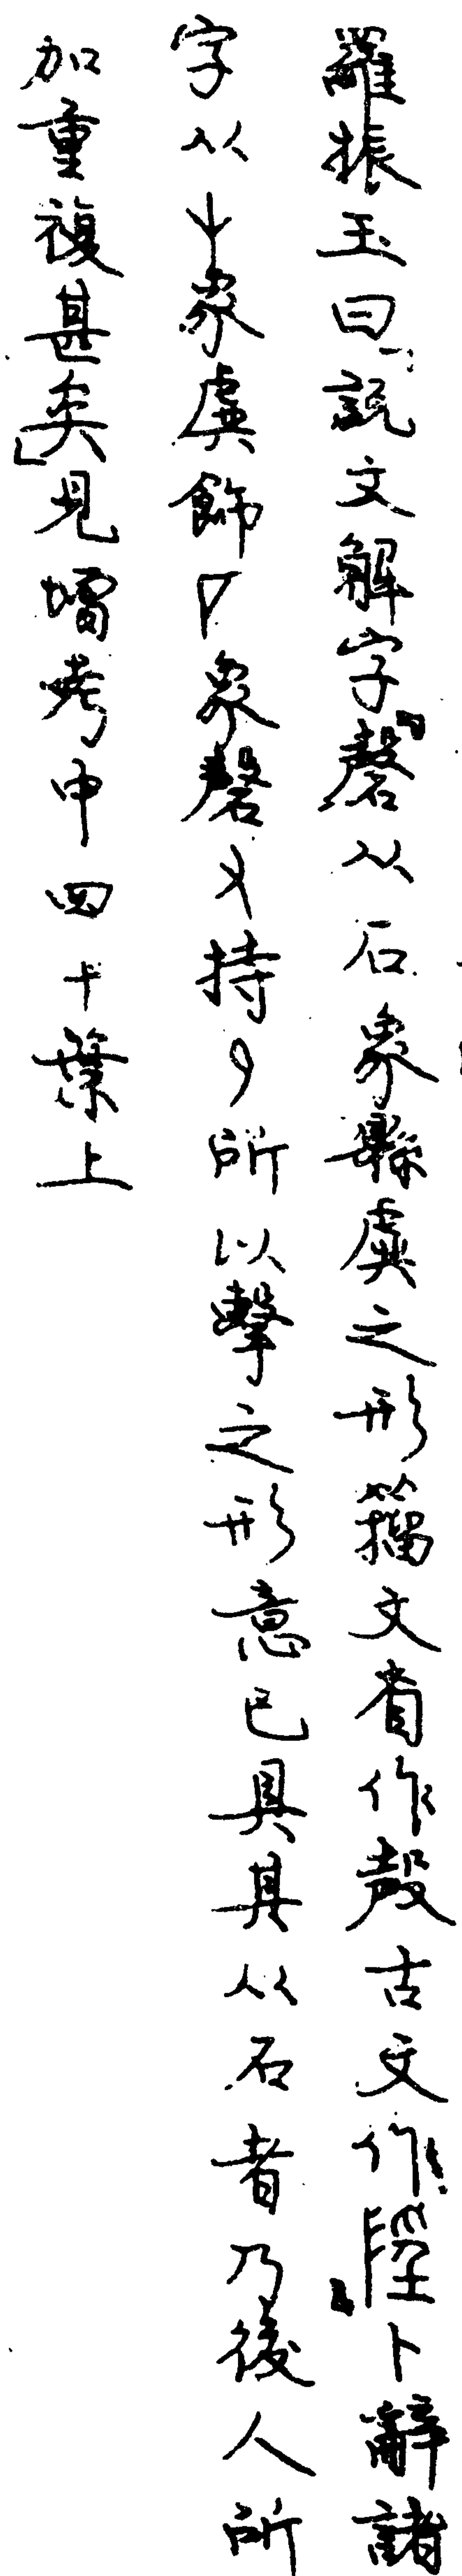 羅振玉曰「說文解字『磬从石象縣虡之形籀文省作殸古文作硜』卜辭諸
字从屮象虡飾𠂆象磬又持𠃋所以擊之形意已具其从石者乃後人所
加重複甚矣」見增考中四十葉上